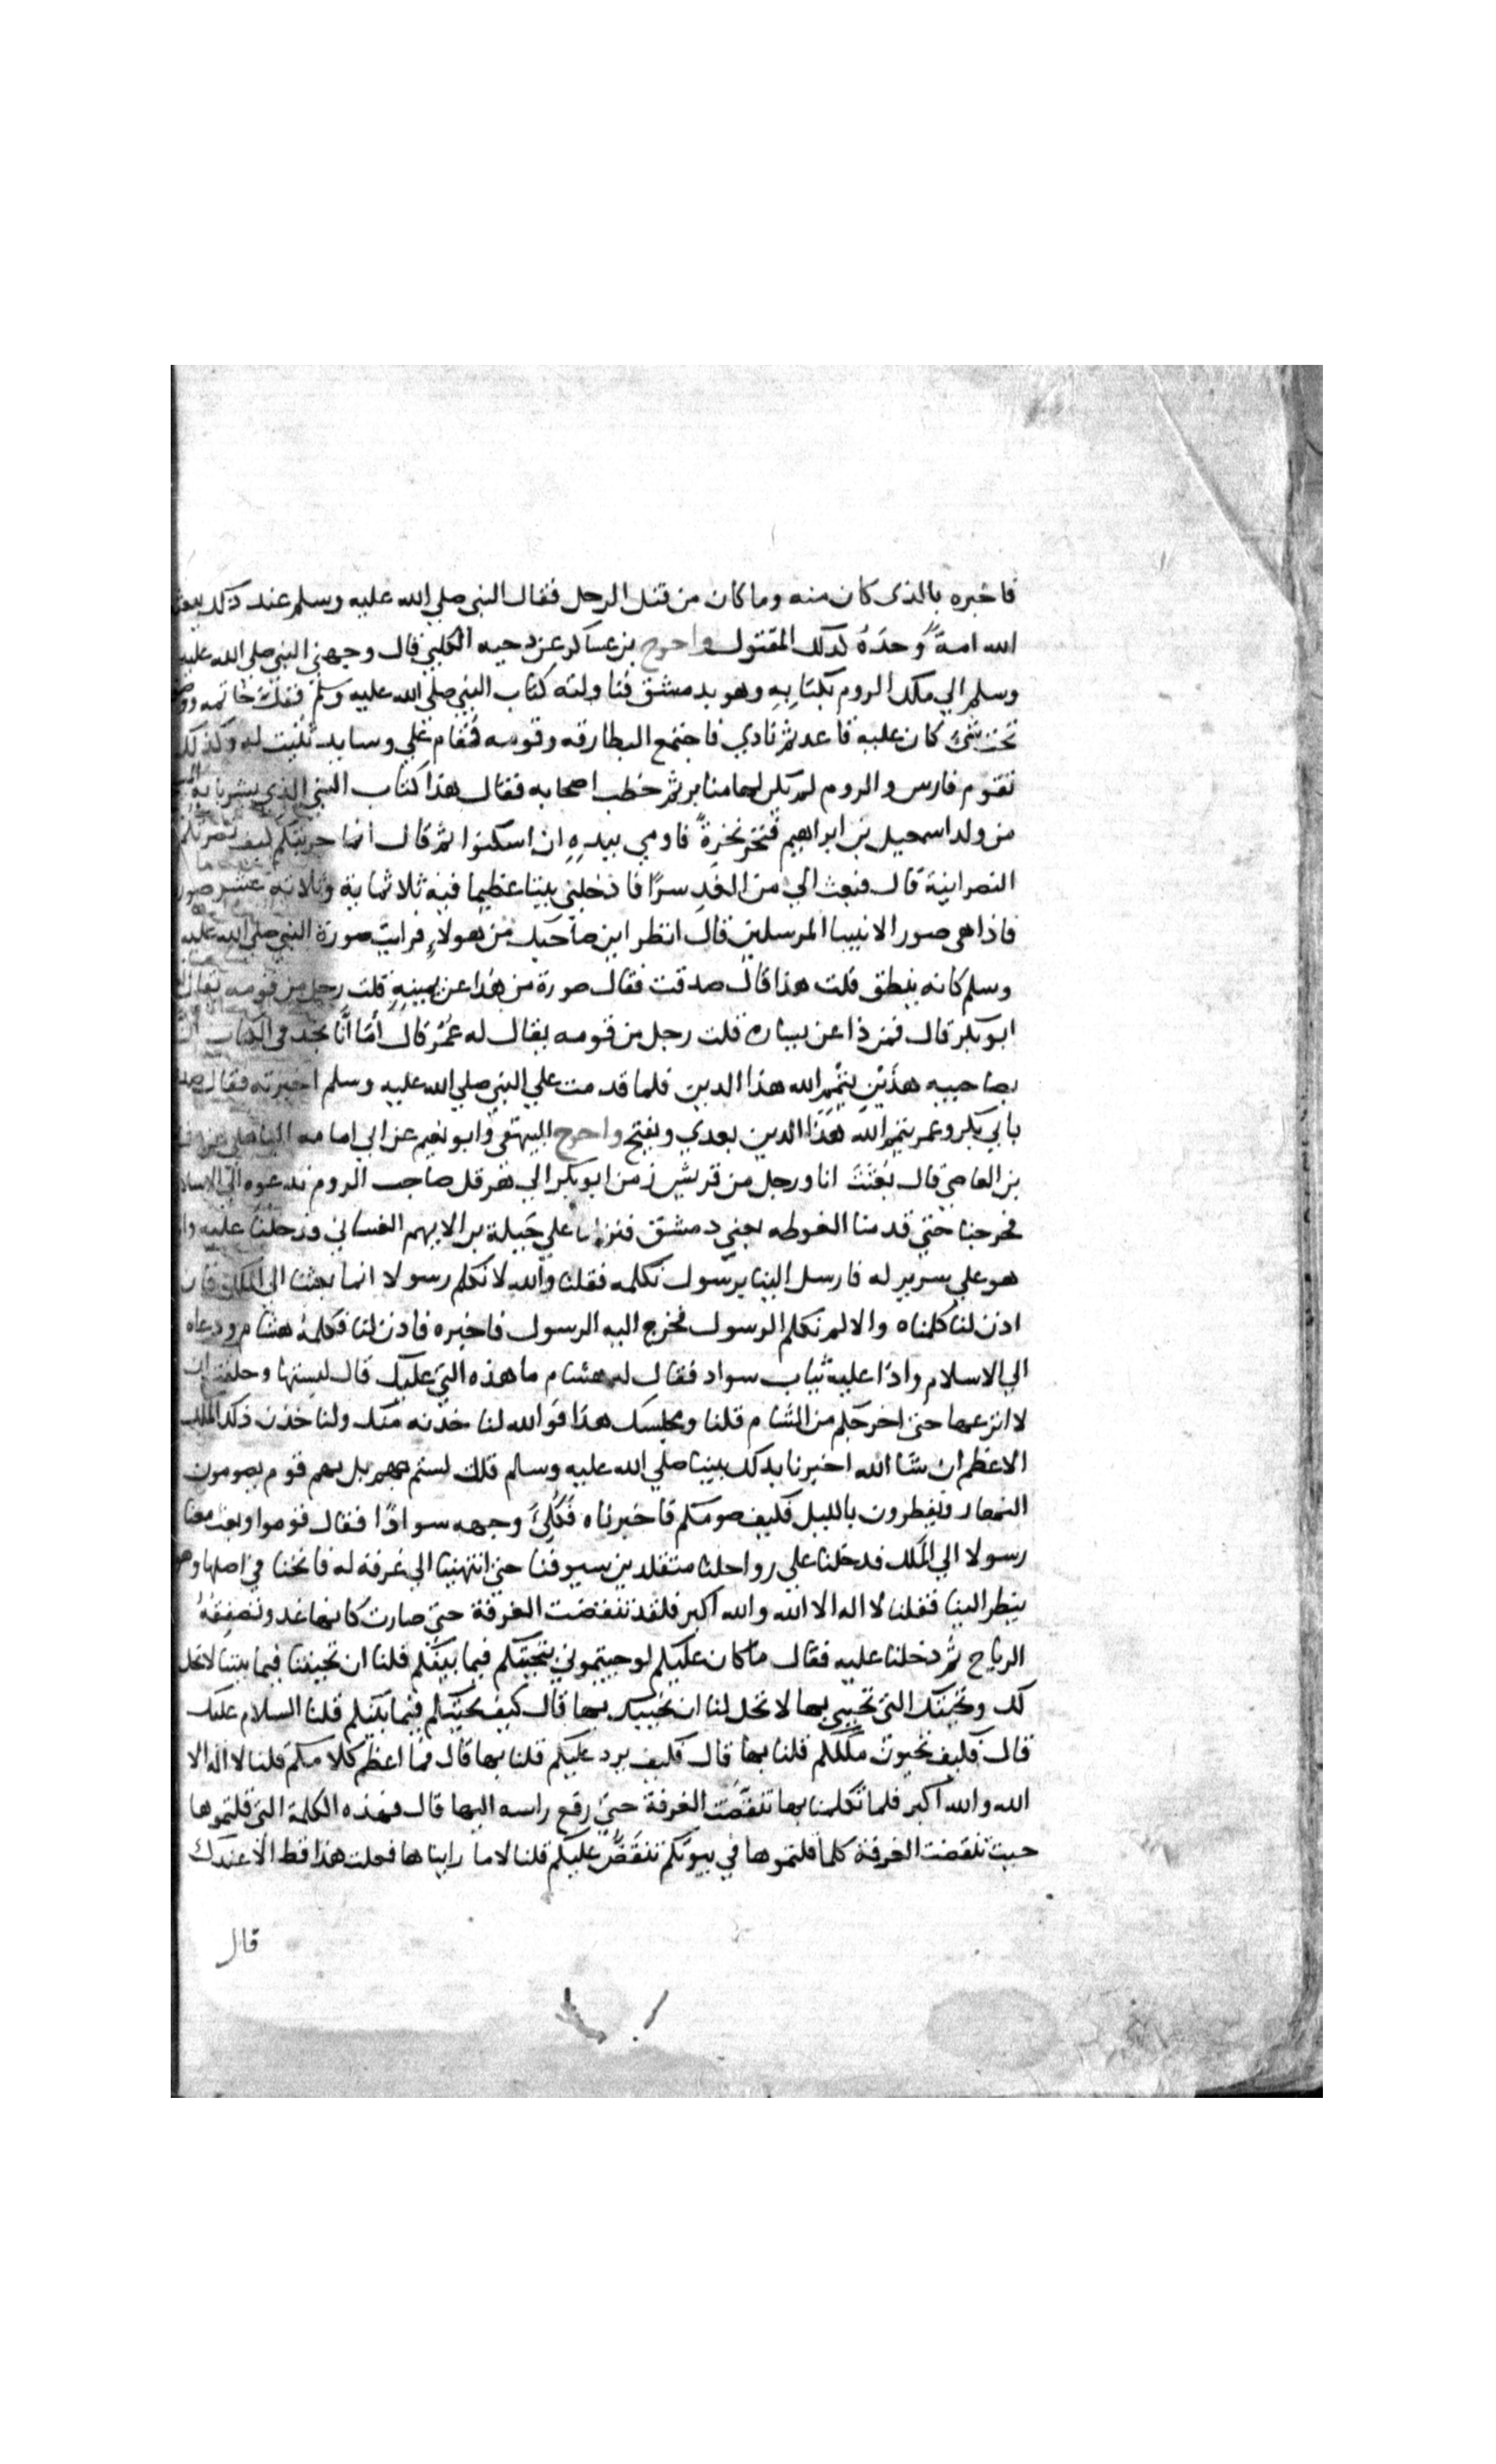 فاخبره بالذى كان منه وما كان من قتل الرجل فقال النبي صلي الله عليه وسلم عند ذلك يبعث
الله امةً وحدَهُ لذلك المقتول واخرج بن عساكر عن دحيه الكلبي قال وجهني النبي صلي الله عليه
وسلم الي ملك الروم بكتابِهِ وهو بدمشق فناولته كتاب النبي صلي الله عليه وسلم فقبل خاتمه ووضعه
تحت شئ كان عليه قاعد ثم نادي فاجتمع البطارقه وقومه فقام علي وسايد ثنيت له وكذلك
تقوم فارس والروم لم يكن لها منابر ثم خطب اصحابه فقال هذا كتاب النبي الذي بشرنا به
من ولد اسمعيل بن ابراهيم فنخر نخرةً فاومي بيدهِ ان اسكتوا ثم قال انما جربتكم كيف نصرتكم
النصرانية قال فبعث الي من الغدِ سرًا فادخلني بيتا عظيما فيه ثلاثماية وثلاثة عشر صورة
فاذا هي صور الانبيا المرسلين قال انظر اين صاحبك من هولاءِ فرايت صورة النبي صلي الله عليه
وسلم كانه ينطق قلت هذا قال صدقت فقال صورة من هذا عن يمينهِ قلت رجل من قومه يقال له
ابو بكر قال فمن ذا عن يساره قلت رجل من قومه يقال له عُمَر قال أمَا أنَّا نجد في الكتاب
بصاحبيه هذَيْنِ يُتمِّم الله هذا الدين فلما قدمت علي النبي صلي الله عليه وسلم اخبرته فقال صدق
بابي بكر وعمر يتمم الله هَذا الدين بعدي ويفتح واخرج البيهقي وابو نعيم عن ابي امامه الباهلي عن هشام
بن العاصي قال بُعثتَ انا ورجل من قريش زمن ابو بكر الي هرقل صاحب الروم ندعوه الي الاسلام
فخرجنا حتي قدمنا الغوطه يعني دمشق فنزلنا علي جَبلة بن الايهم الغساني فدخلنا عليه واذا
هو علي سرير له فارسل الينا برسول نكلمه فقلنا والله لا نكلم رسولا انما بعثنا الي الملك فان
اذن لنا كلمناه والا لم نكلم الرسول فخرج اليه الرسول فاخبره فاذن لنا فكلمهُ هشام ودعاه
الي الاسلام واذا عليه ثياب سواد فقال له هشام ما هذه التي عليك قال لبستها وحلفت ان
لا انزعها حتى اخرجكم من الشام قلنا ومجلسك هذا فوالله لناخذنه منك ولناخذن ذلك الملك
الاعظم ان شا الله اخبرنا بذلك نبينا صلي الله عليه وسلم قال لستم بهم بل هم قوم يصومون
النهار ويفطرون بالليل فكيف صومكم فاخبرناه فَمُلِئ وجهه سوادًا فقال قوموا وبعث معنا
رسولا الي الملك فدخلنا علي رواحلنا متقلدين سيوفنا حتى انتهينا الي غرفة له فانخنا في اصلها وهو
ينظر الينا فقلنا لا اله الا الله والله اكبر فلقد تنفضت الغرفة حتى صارت كانها عذق تصفقهُ
الرياح ثم دخلنا عليه فقال ما كان عليكم لو حييتموني بتحيتكم فيما بينكم قلنا ان تحيتنا فيما بيننا لا تحل
لك وتحيتك التى تحيي بها لا تحل لنا ان نحييك بها قال كيف تحيتكم فيما بينكم قلنا السلام عليك
قال فكيف تحيون ملككم قلنا بها قال فكيف يرد عليكم قلنا بها قال فما اعظم كلامكم قلنا لا اله الا
الله والله اكبر فلما تكلمنا بها تنفضت الغرفة حتي رفع راسه اليها قال فهذه الكلمة التي قلتموها
حيث تنفضت الغرفة كلما قلتموها في بيوتكم تنفض عليكم قلنا لا ما رايناها فعلت هذا قط الا عندك
قال